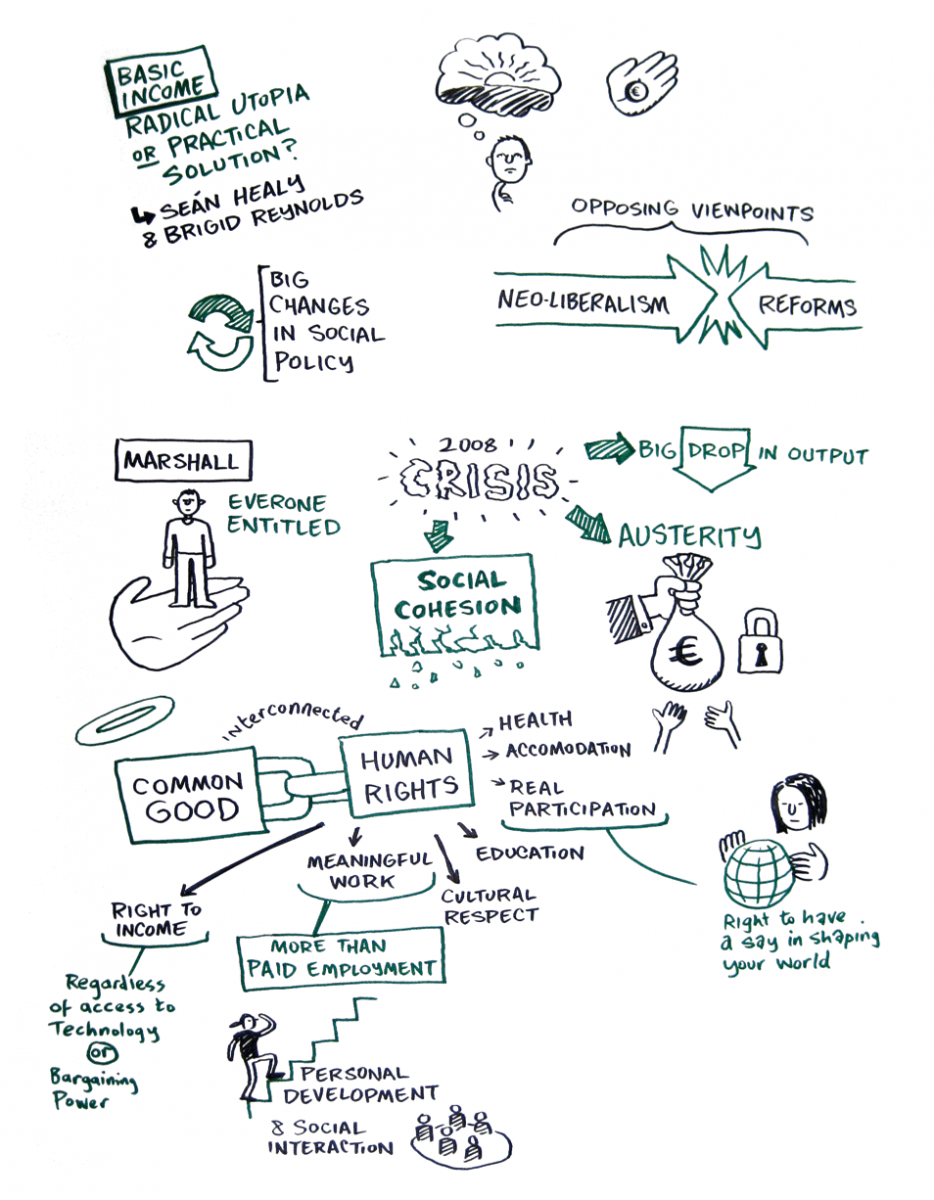 BASIC
INCOME
RADICAL UTOPIA
OR PRACTICAL
SOLUTION?
SEÁN HEALY
& BRIGID REYNOLDS
€
OPPOSING VIEWPOINTS
NEO-LIBERALISM
REFORMS
BIG
CHANGES
IN SOCIAL
POLICY
MARSHALL
EVERONE
ENTITLED
2008
CRISIS
BIG DROP IN OUTPUT
AUSTERITY
€
SOCIAL
COHESION
interconnected
COMMON
GOOD
HUMAN
RIGHTS
HEALTH
ACCOMODATION
REAL
PARTICIPATION
Right to have
a say in shaping
your world
EDUCATION
CULTURAL
RESPECT
MEANINGFUL
WORK
MORE THAN
PAID EMPLOYMENT
RIGHT TO
INCOME
Regardless
of access to
Technology
or
Bargaining
Power
PERSONAL
DEVELOPMENT
& SOCIAL
INTERACTION